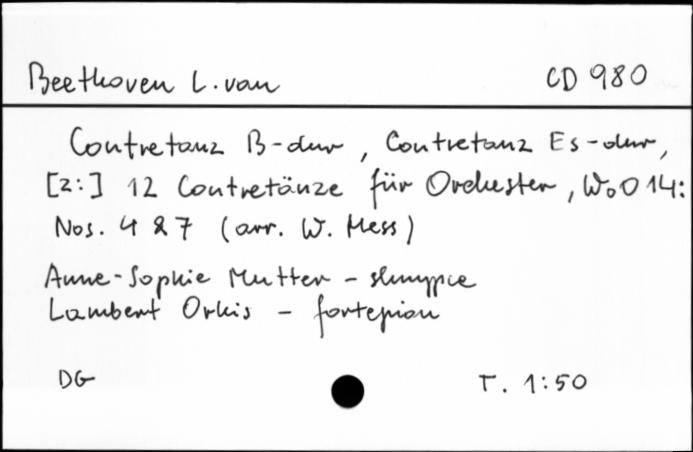 Beethoven L. van CD 980
Contretanz B-dur, Contretanz Es-dur,
[z:] 12 Contretänze für Orchester, WoO 14:
Nos. 4 & 7 (arr. W. Hess)
Anne-Sophie Mutter - skrzypce
Lambert Orkis - fortepian
DG T. 1:50